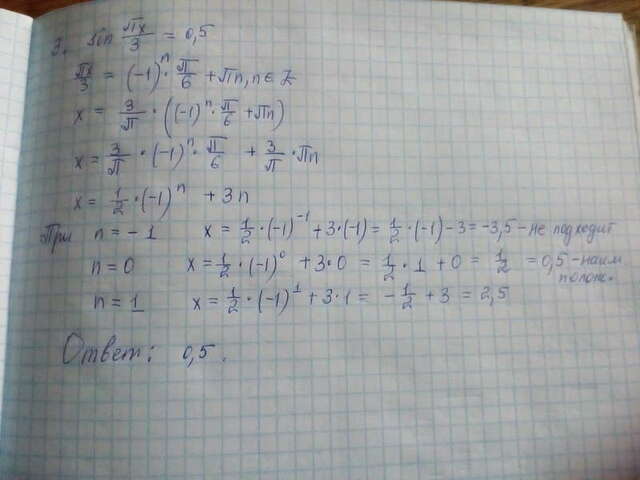 3. sin πx/3 = 0,5
πx/3 = (-1)^n · π/6 + πn, n ∈ Z
x = 3/π · ((-1)^n · π/6 + πn)
x = 3/π · (-1)^n · π/6 + 3/π · πn
x = 1/2 · (-1)^n + 3n
При n = -1 x = 1/2 · (-1)^-1 + 3·(-1) = 1/2 · (-1) - 3 = -3,5 - не подходит
n = 0 x = 1/2 · (-1)^0 + 3·0 = 1/2 · 1 + 0 = 1/2 = 0,5 - наим
полож.
n = 1 x = 1/2 · (-1)^1 + 3·1 = -1/2 + 3 = 2,5
Ответ: 0,5.